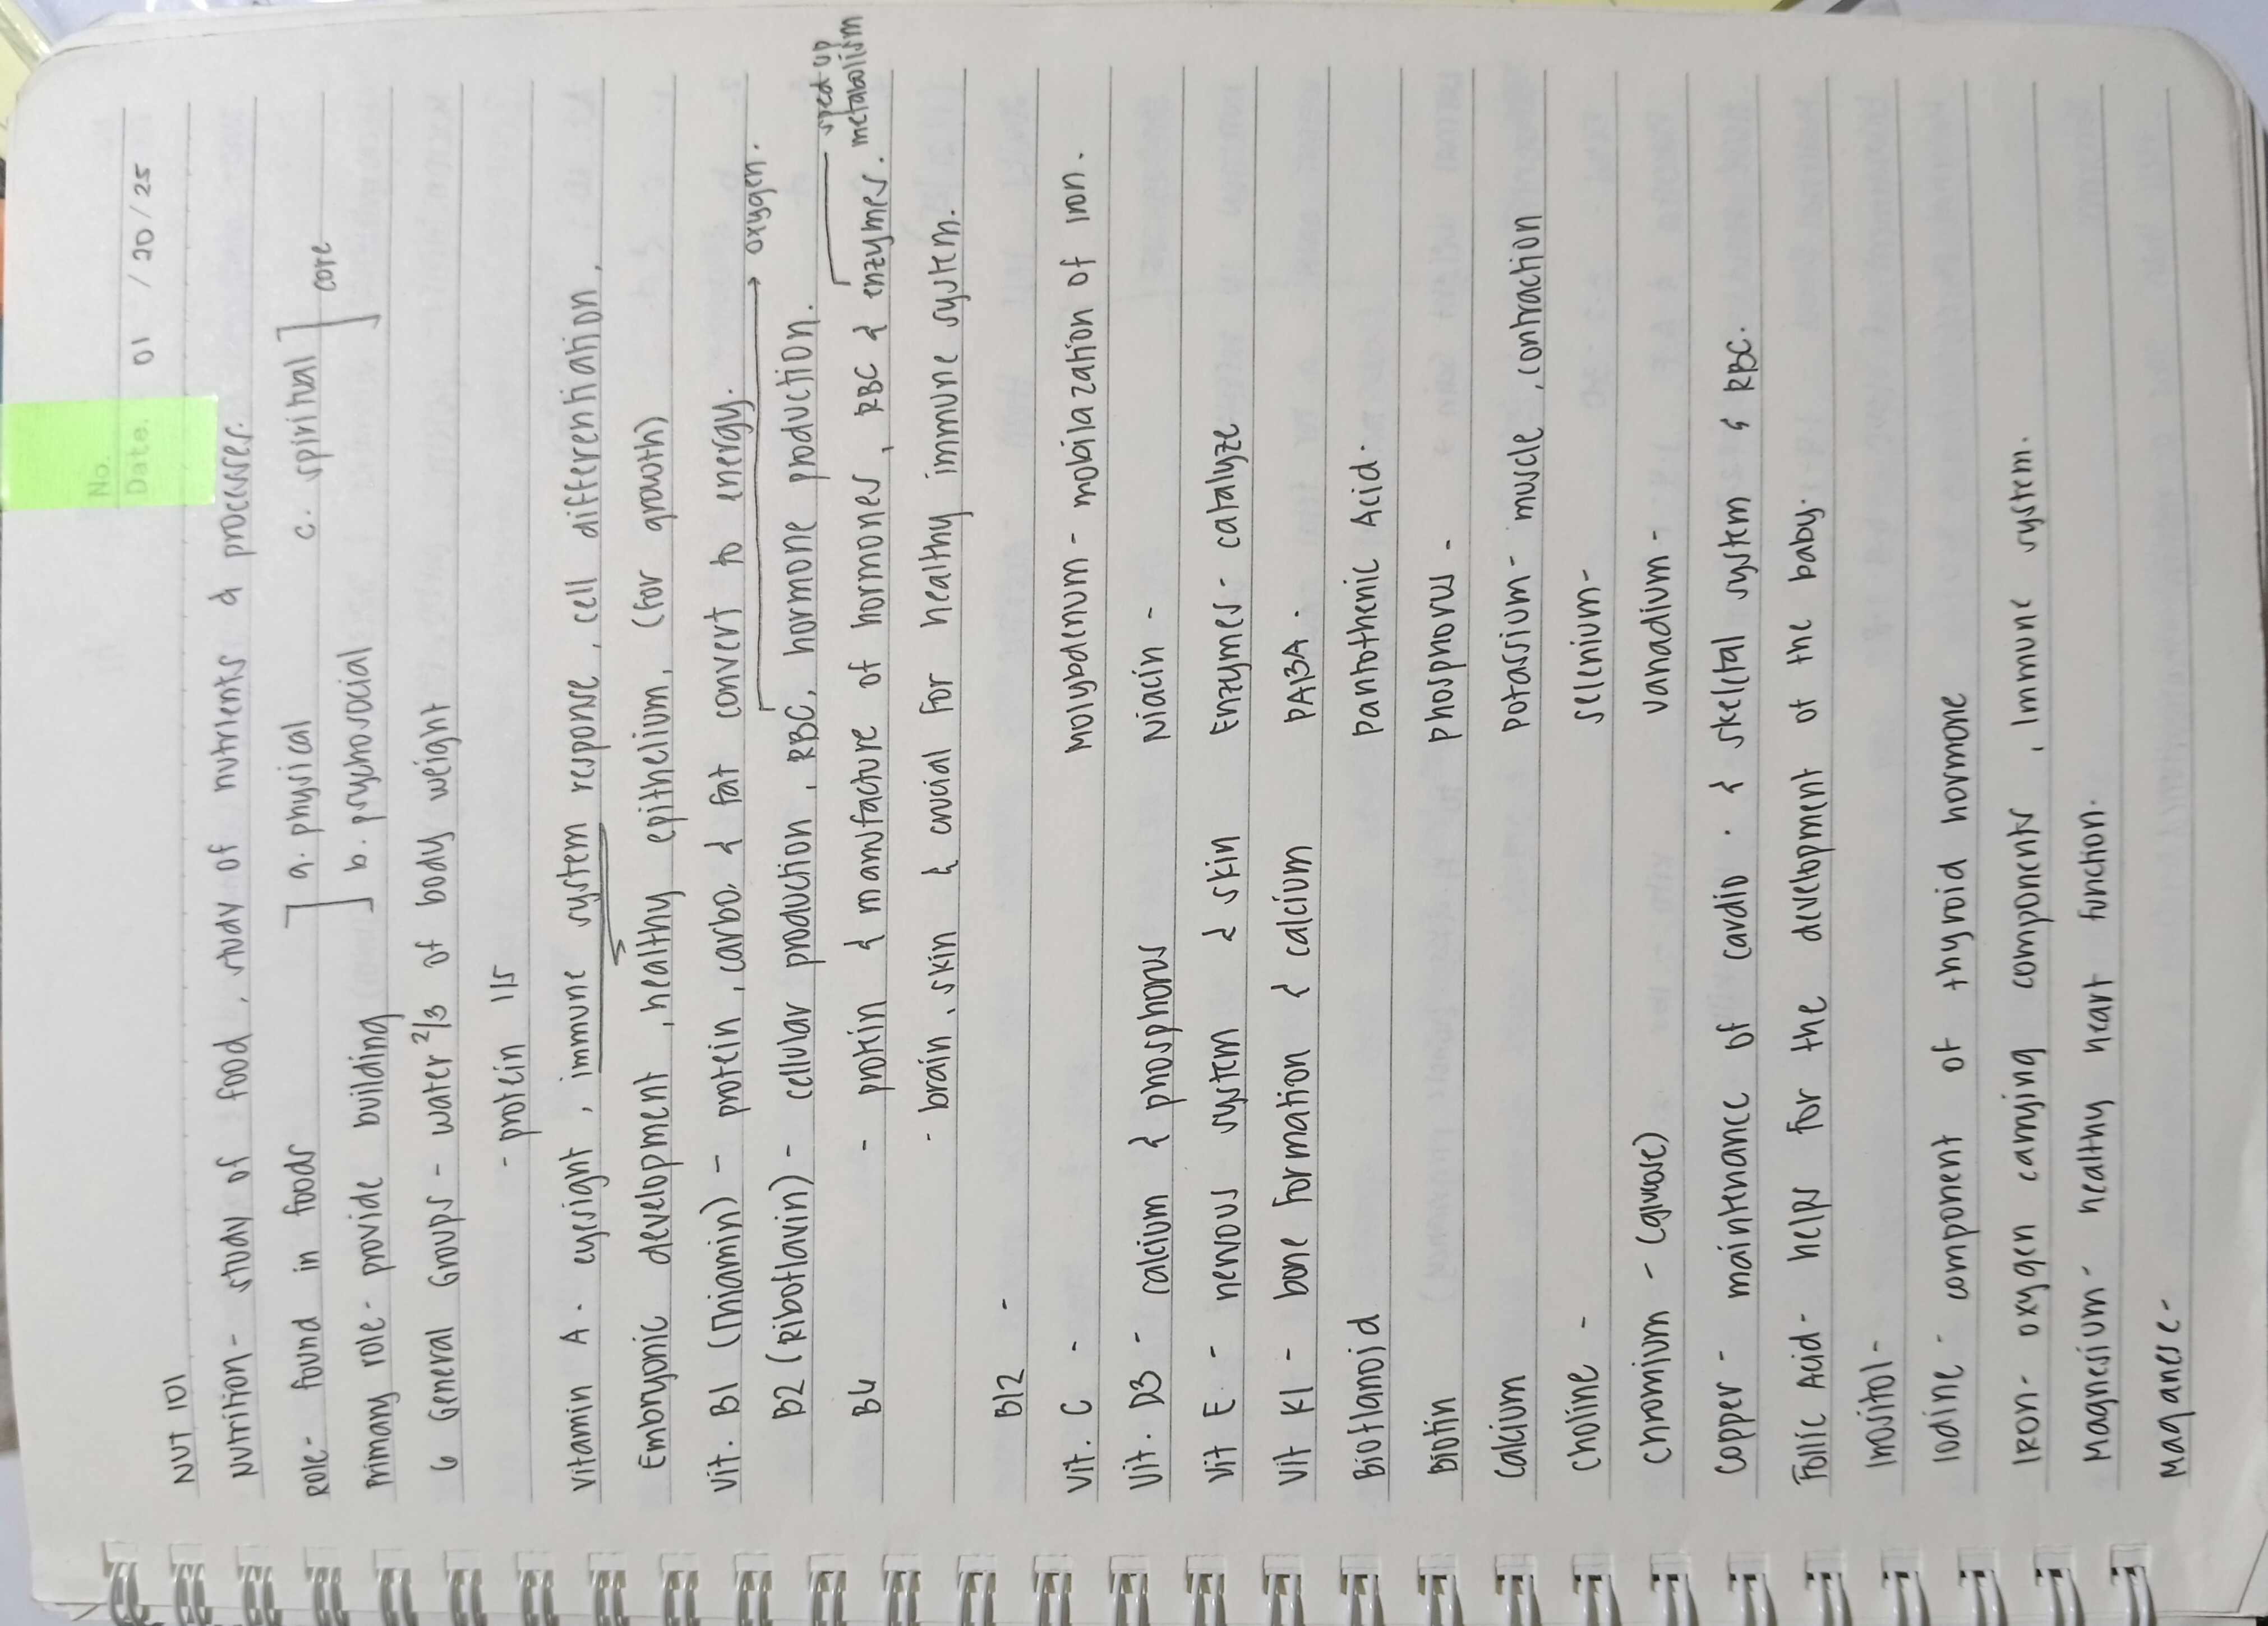 No.
Date. 01 / 20 / 25
NUT 101
Nutrition - study of food, study of nutrients & processes.
Role - found in foods a. physical c. spiritual core
Primary role - provide building b. psychosocial
6 General Groups - water 2/3 of body weight
- protein 1/5
Vitamin A - eyesight, immune system response, cell differentiation,
Embryonic development, healthy epithelium, (for growth)
Vit. B1 (Thiamin) - protein, carbo. & fat convert to energy.
→ oxygen.
B2 (Riboflavin) - cellular production, RBC, hormone production.
sped up
metabolism
B6 - protein & manufacture of hormones, RBC & enzymes.
- brain, skin & crucial for healthy immune system.
B12 -
Vit. C - Molybdenum - mobilazation of iron.
Vit. D3 - calcium & phosphorus Niacin -
Vit E - nervous system & skin Enzymes - catalyze
Vit K1 - bone formation & calcium PABA -
Bioflanoid Pantothenic Acid -
Biotin Phosphorus -
Calcium Potassium - muscle, contraction
Choline - Selenium -
Chromium - (glucose) Vanadium -
Copper - maintenance of cardio. & skeletal system & RBC.
Follic Acid - helps for the development of the baby.
Inositol -
Iodine - component of thyroid hormone
Iron - oxygen carrying components, Immune system.
Magnesium - healthy heart function.
Maganese -